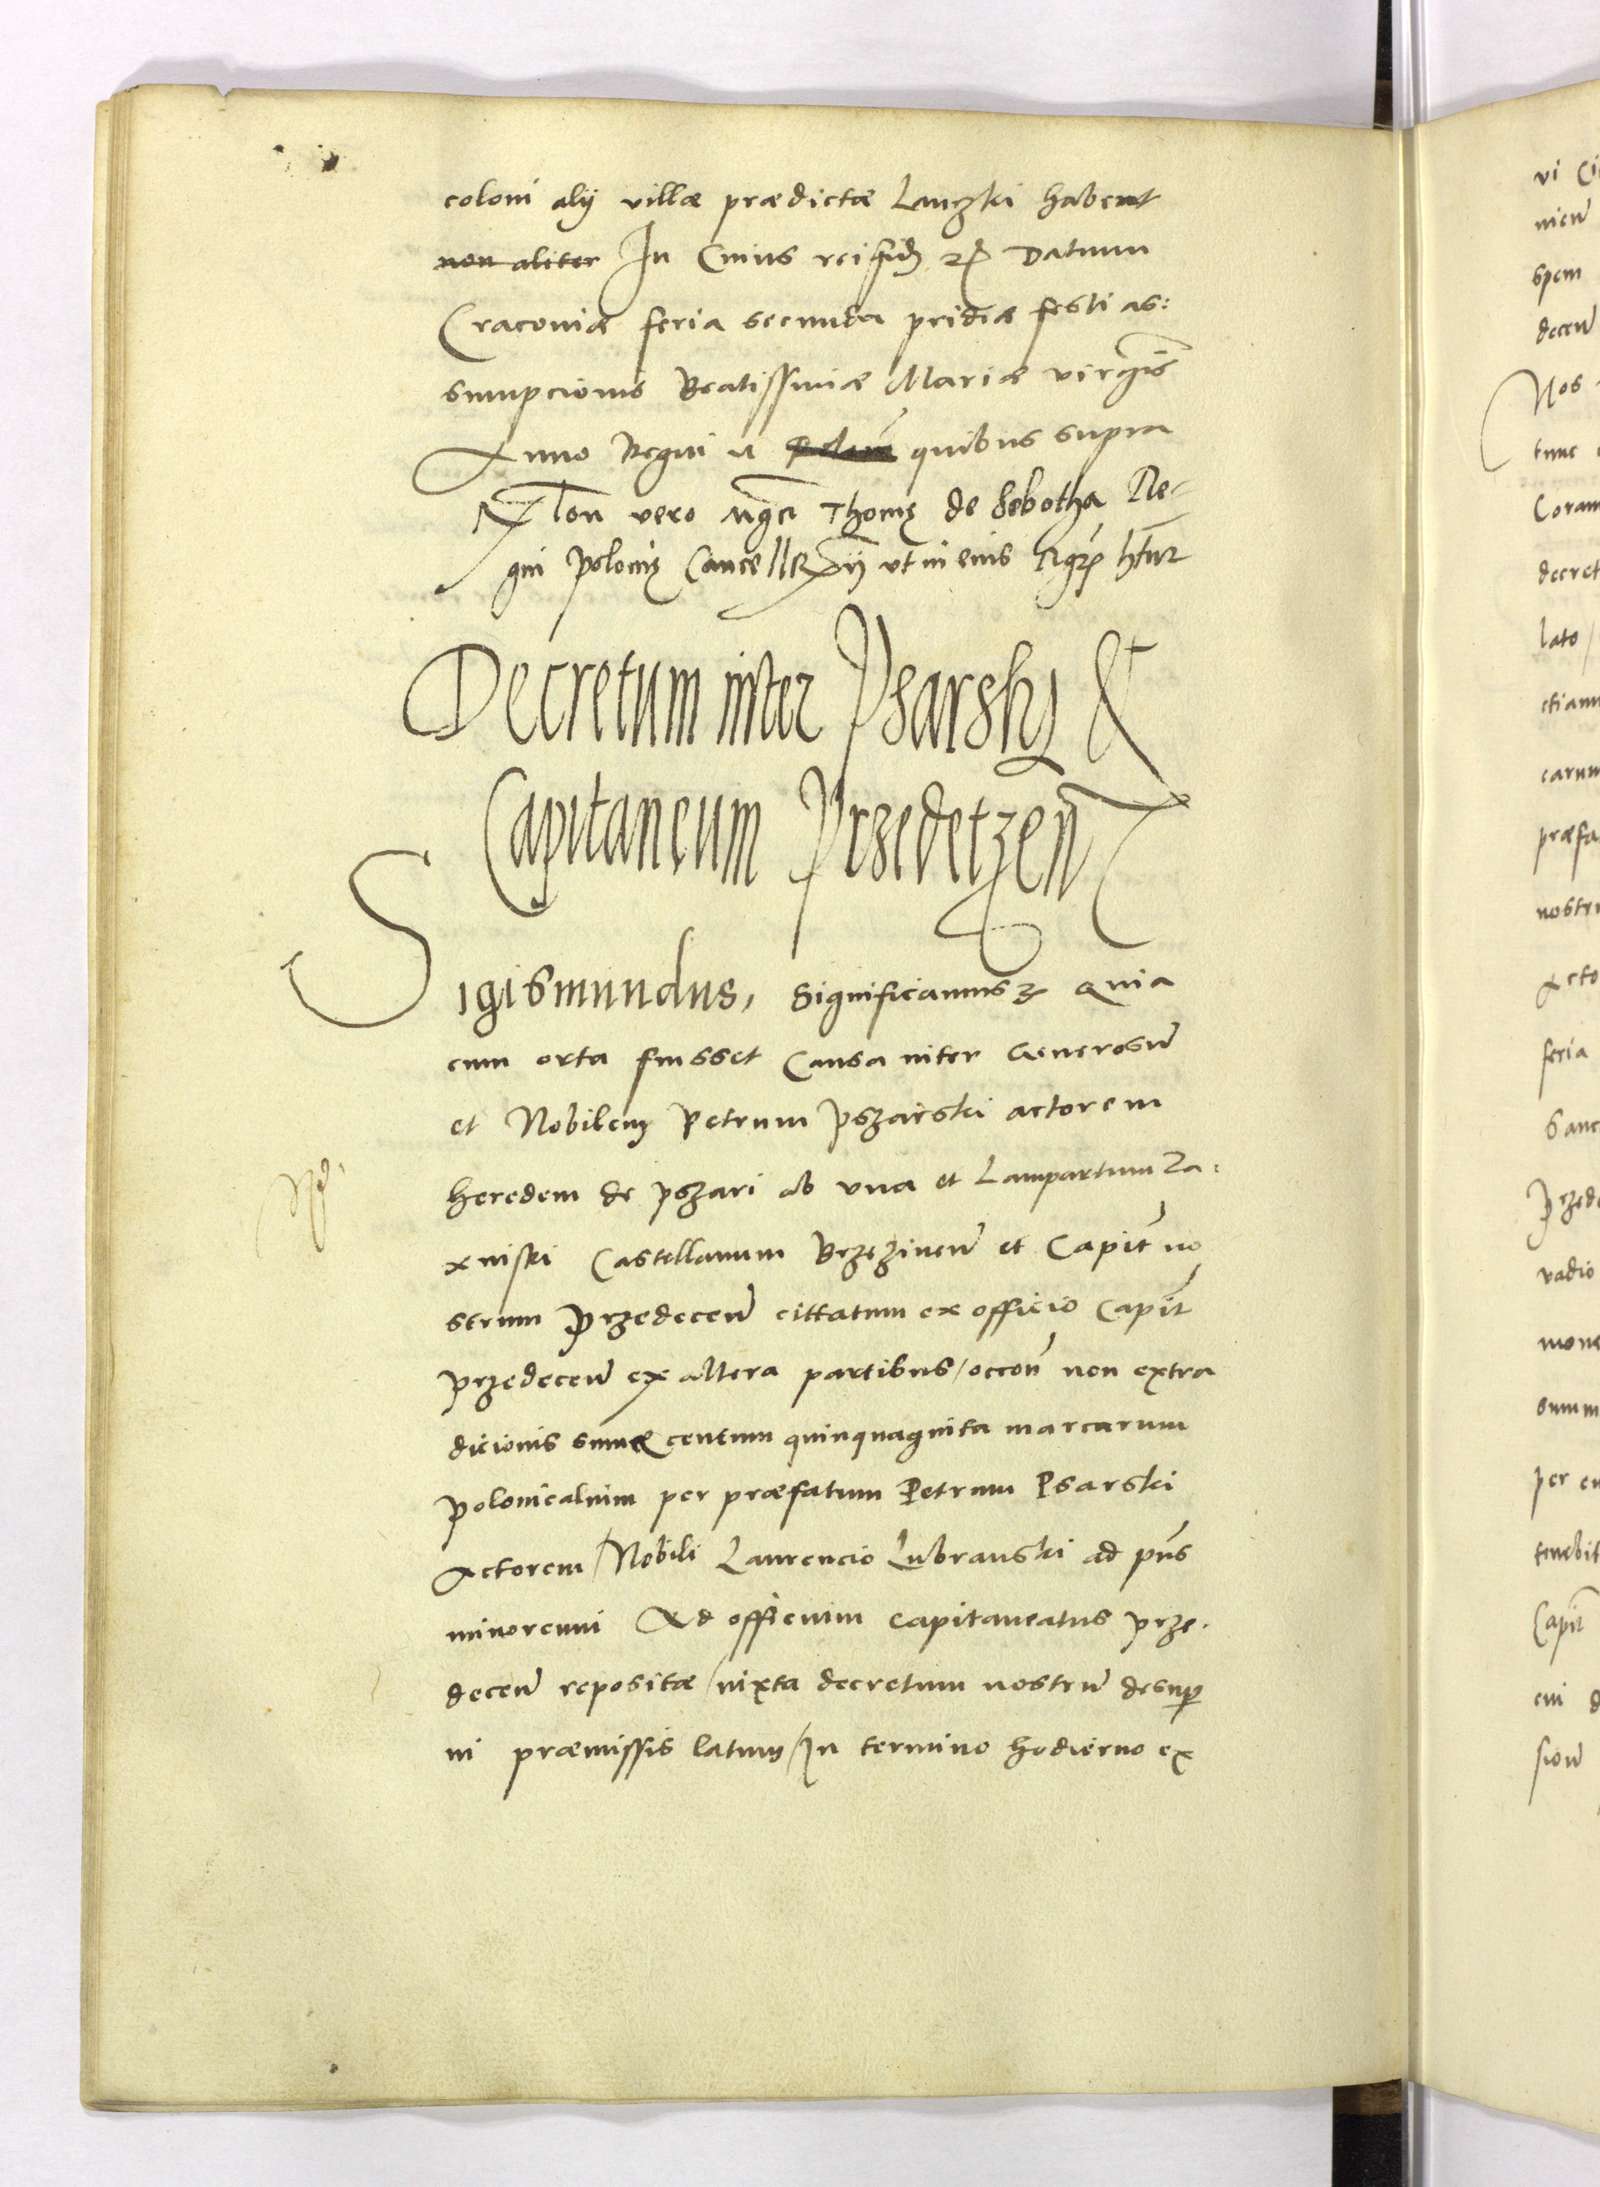 coloni alij villæ prædictæ Lanzki habent
non aliter In Cuius rei fid̃ Datum
Cracoviæ feria secunda pridiæ festi as:
sumpcionis Beatissimæ Mariæ virgĩs
Anno Regni quibus supra
Rl̃on vero Mg̃ci Thomę de Sebotha Re-
gni Polonię Cancellarij ut in eius
Decretum inter Psarsky &
Capitaneum Przedetzeñ
Sigismundus, Significamus Quia
cum orta fuisset Causa inter Generosũ
et Nobilem Petrum Pszarski actorem
heredem de Pszari ab una et Lampartum Za:
xniski Castellanum Brzezineñ et Capit̃ no
strum Przedeceñ cittatum ex officio Capit̃
Przedeceñ ex altera partibus / occoñ non extra
dicionis sumæ centum quinquaginta marcarum
Polonicalium per præfatum Petrum Psarski
Actorem / Nobili Laurencio Lubranski ad pñs
minorenni Ad officium Capitaneatus Prze.
deceñ repositæ / iuxta decretum nostrũ desup
in præmissis latum / In termino hodierno ex
vi
decret
lato /
præfa
Acto
feria
Sanc
Przede
vadio
summ
per
tenebit
Capit̃